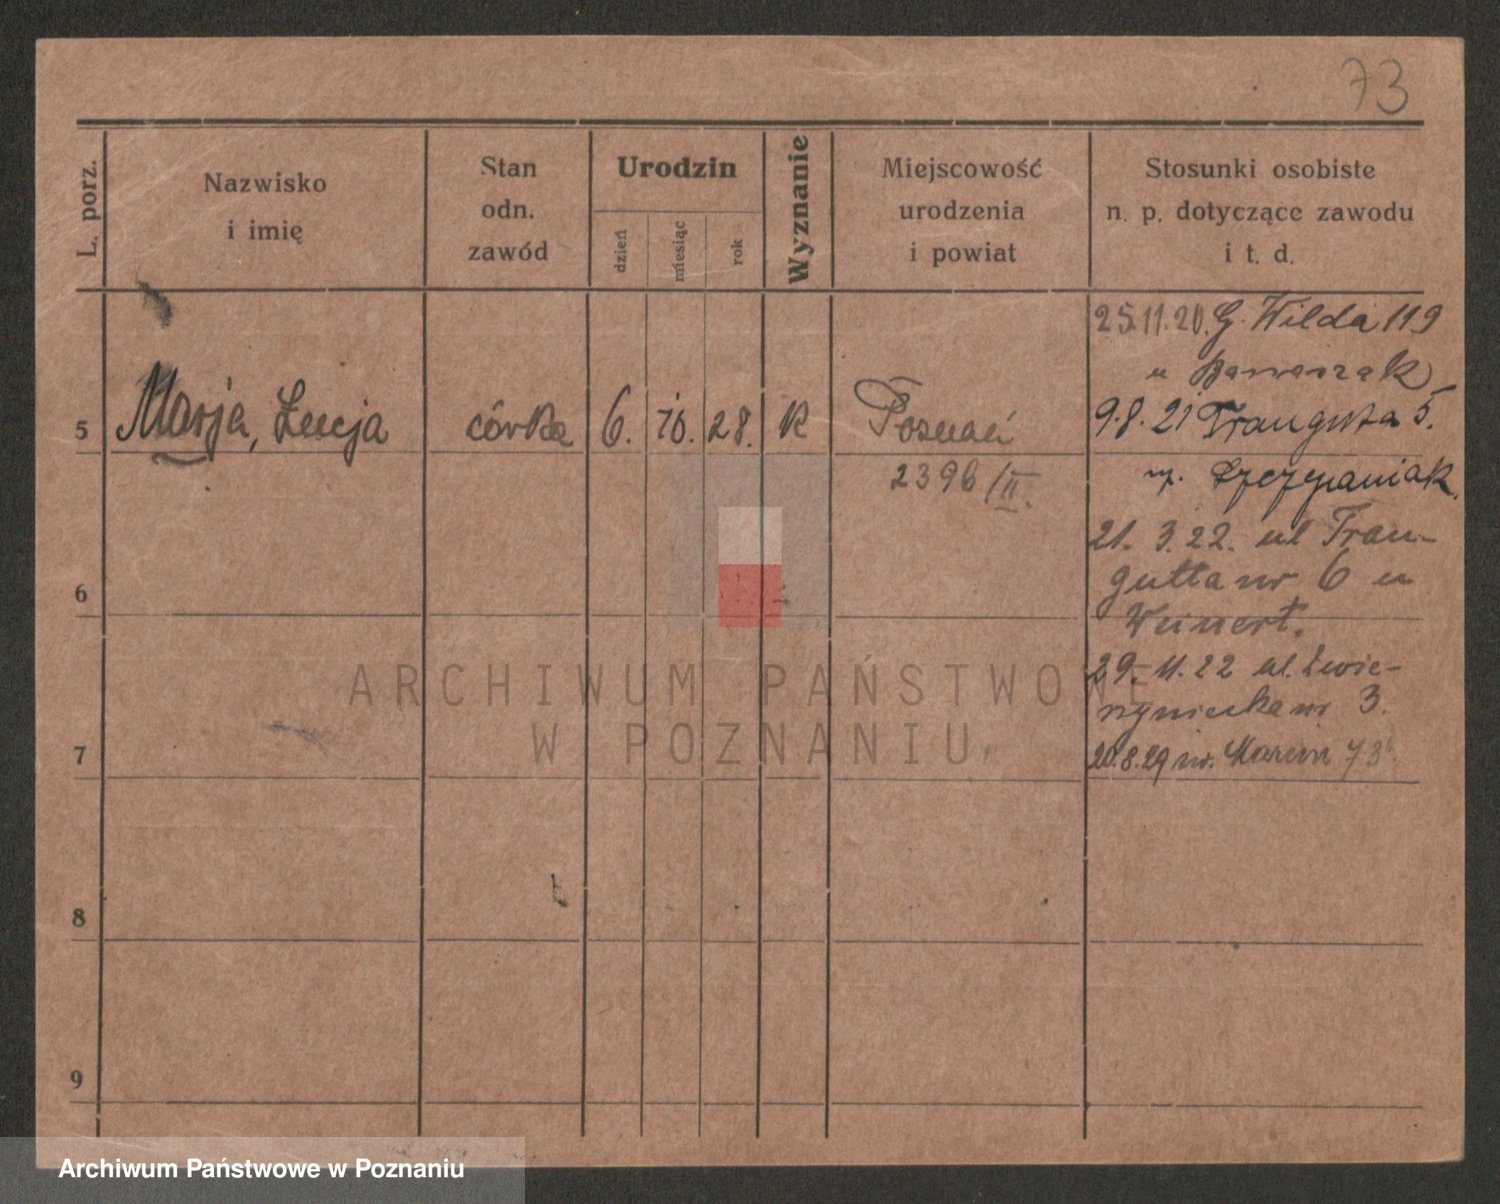 73
L. porz.
Nazwisko
i imię
Stan
odn.
zawód
Urodzin
dzień
miesiąc
rok
Wyznanie
Miejscowość
urodzenia
i powiat
Stosunki osobiste
n. p. dotyczące zawodu
i t. d.
25.11.20. G. Wilda 119
u
9.8.21 Traugutta 5.
5 Marja, Łucja córka 6. 10. 28. k Poznań
2396/II.
Szczepaniak.
21. 3. 22. ul Trau-
gutta nr 6 u
Weinert.
29. 11. 22 ul. Zwie-
rzyniecka nr 3.
20.8.29 św. Marcin 73
6
7
8
9
ARCHIWUM PAŃSTWOWE
W POZNANIU
Archiwum Państwowe w Poznaniu